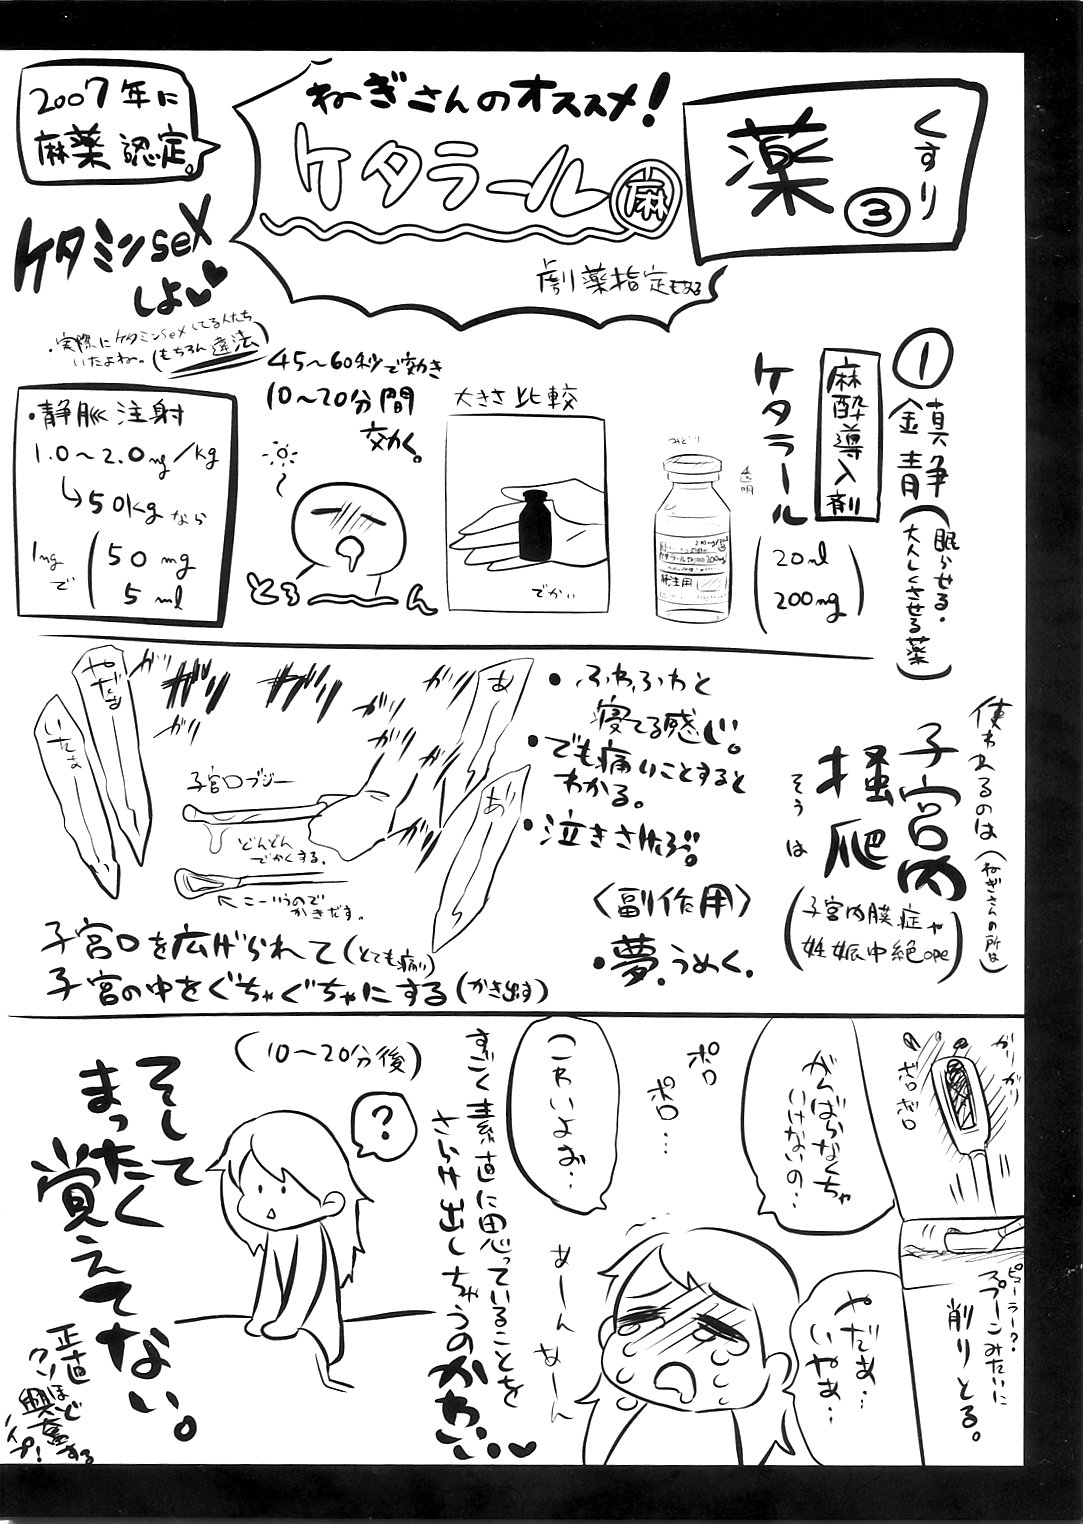 薬
くすり
③
ねぎさんのオススメ!
ケタラール
麻
劇薬指定もある
2007年に
麻薬認定。
ケタミンseX
しよ♥♥
・実際にケタミンseXしてる人たち
いたよね。(もちろん違法)
①
鎮静(眠らせる・
大人しくさせる薬)
麻酔導入剤
ケタラール
(20ml
200mg)
みどり
透明
大きさ比較
でかい
45〜60秒で効き
10〜20分間
効く。
とろ
ん
・静脈注射
1.0〜2.0mg/kg
↳50kgなら
1mgで(50mg
5ml
使われるのは(ねぎさんの所は)
子宮内
掻爬
そうは
(子宮内膜症や
妊娠中絶ope)
・ふわふわと
寝てる感じ。
・でも痛いことすると
わかる。
・泣きさけぶ。
<副作用>
・夢、うめく。
あ"
あ"
やだぁ
いたぁ
ガリ
ガリ
ガリ
ガリ
ガリ
ガリ
ガリ
子宮口ブジー
どんどん
でかくする。
←こーいうので
かきだす。
子宮口を広げられて(とても痛い)
子宮の中をぐちゃぐちゃにする(かき出す)
ガリガリ
ボロボロ
ピューラー?
プーンみたいに
削りとる。
がんばらなくちゃ
いけないの…
ポロ
ポロ…
こわいよお…
やだぁ…
いやぁ…
あーん
あーん
すごく素直に思っていることを
さらけ出しちゃうのかわいい♥
(10〜20分後)
?
そして
まったく
覚えてない。
正直
クソほど
興奮する